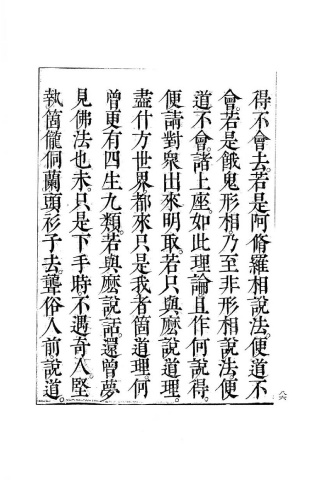 得不會去。若是阿脩羅相說法。便道不
會。若是餓鬼形相。乃至非形相說法。便
道不會。諸上座。如此理論。且作何說得。
便請對衆出來明取。若只與麼說道理。
盡什方世界。都來只是我者箇道理。何
曾更有四生九類。若與麼說話。還曾夢
見佛法也未。只是下手時不遇奇人。堅
執箇儱侗蘭頭衫子去。聾俗人前說道。